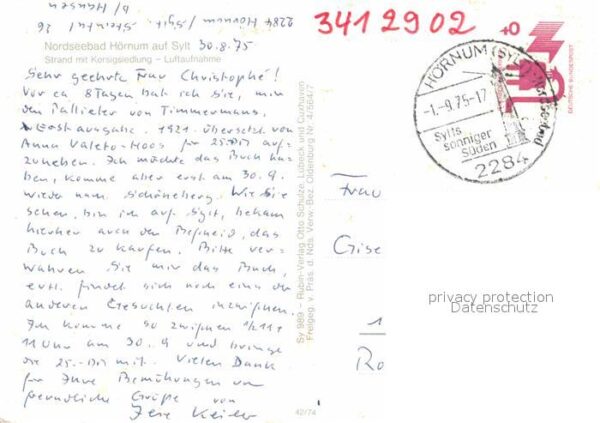 2284 Hörnum / Sylt. Steintal 26
b/ Hansen
Nordseebad Hörnum auf Sylt 30.8.75
Strand mit Korsigsiedlung – Luftaufnahme
Sehr geehrte Frau Christophé!
Vor ca 8 Tagen bat ich Sie, mir
den Pallieter von Timmermans,
Erstausgabe. 1921. übersetzt von
Anna Valeto-Hoos für 25.-DM auf-
zuheben. Ich möchte das Buch ha-
ben, komme aber erst am 30.9.
wieder nach Schöneberg. Wie Sie
sehen, bin ich auf Sylt, bekam
hierher auch den Bescheid, das
Buch zu kaufen. Bitte ver-
wahren Sie mir das Buch,
evtl. findet sich noch eins der
anderen Gesuchten inzwischen.
Ich komme so zwischen
11 Uhr am 30.9 und bringe
die 25.-DM mit. Vielen Dank
für Ihre Bemühungen und
freundliche Grüße von
Ihre
Sy 989 – Rubin-Verlag Otto Schulze, Lübeck und Cuxhaven
Freigeg. v. Präs. d. Nds. Verw.-Bez. Oldenburg Nr. 4/5647
42/74
3412902
DEUTSCHE BUNDESPOST
HÖRNUM (SYLT)
Nordseebad
-1.-9.75-17
Sylts
sonniger
Süden
2284
Frau
Gise
1
Ro
privacy protection
Datenschutz